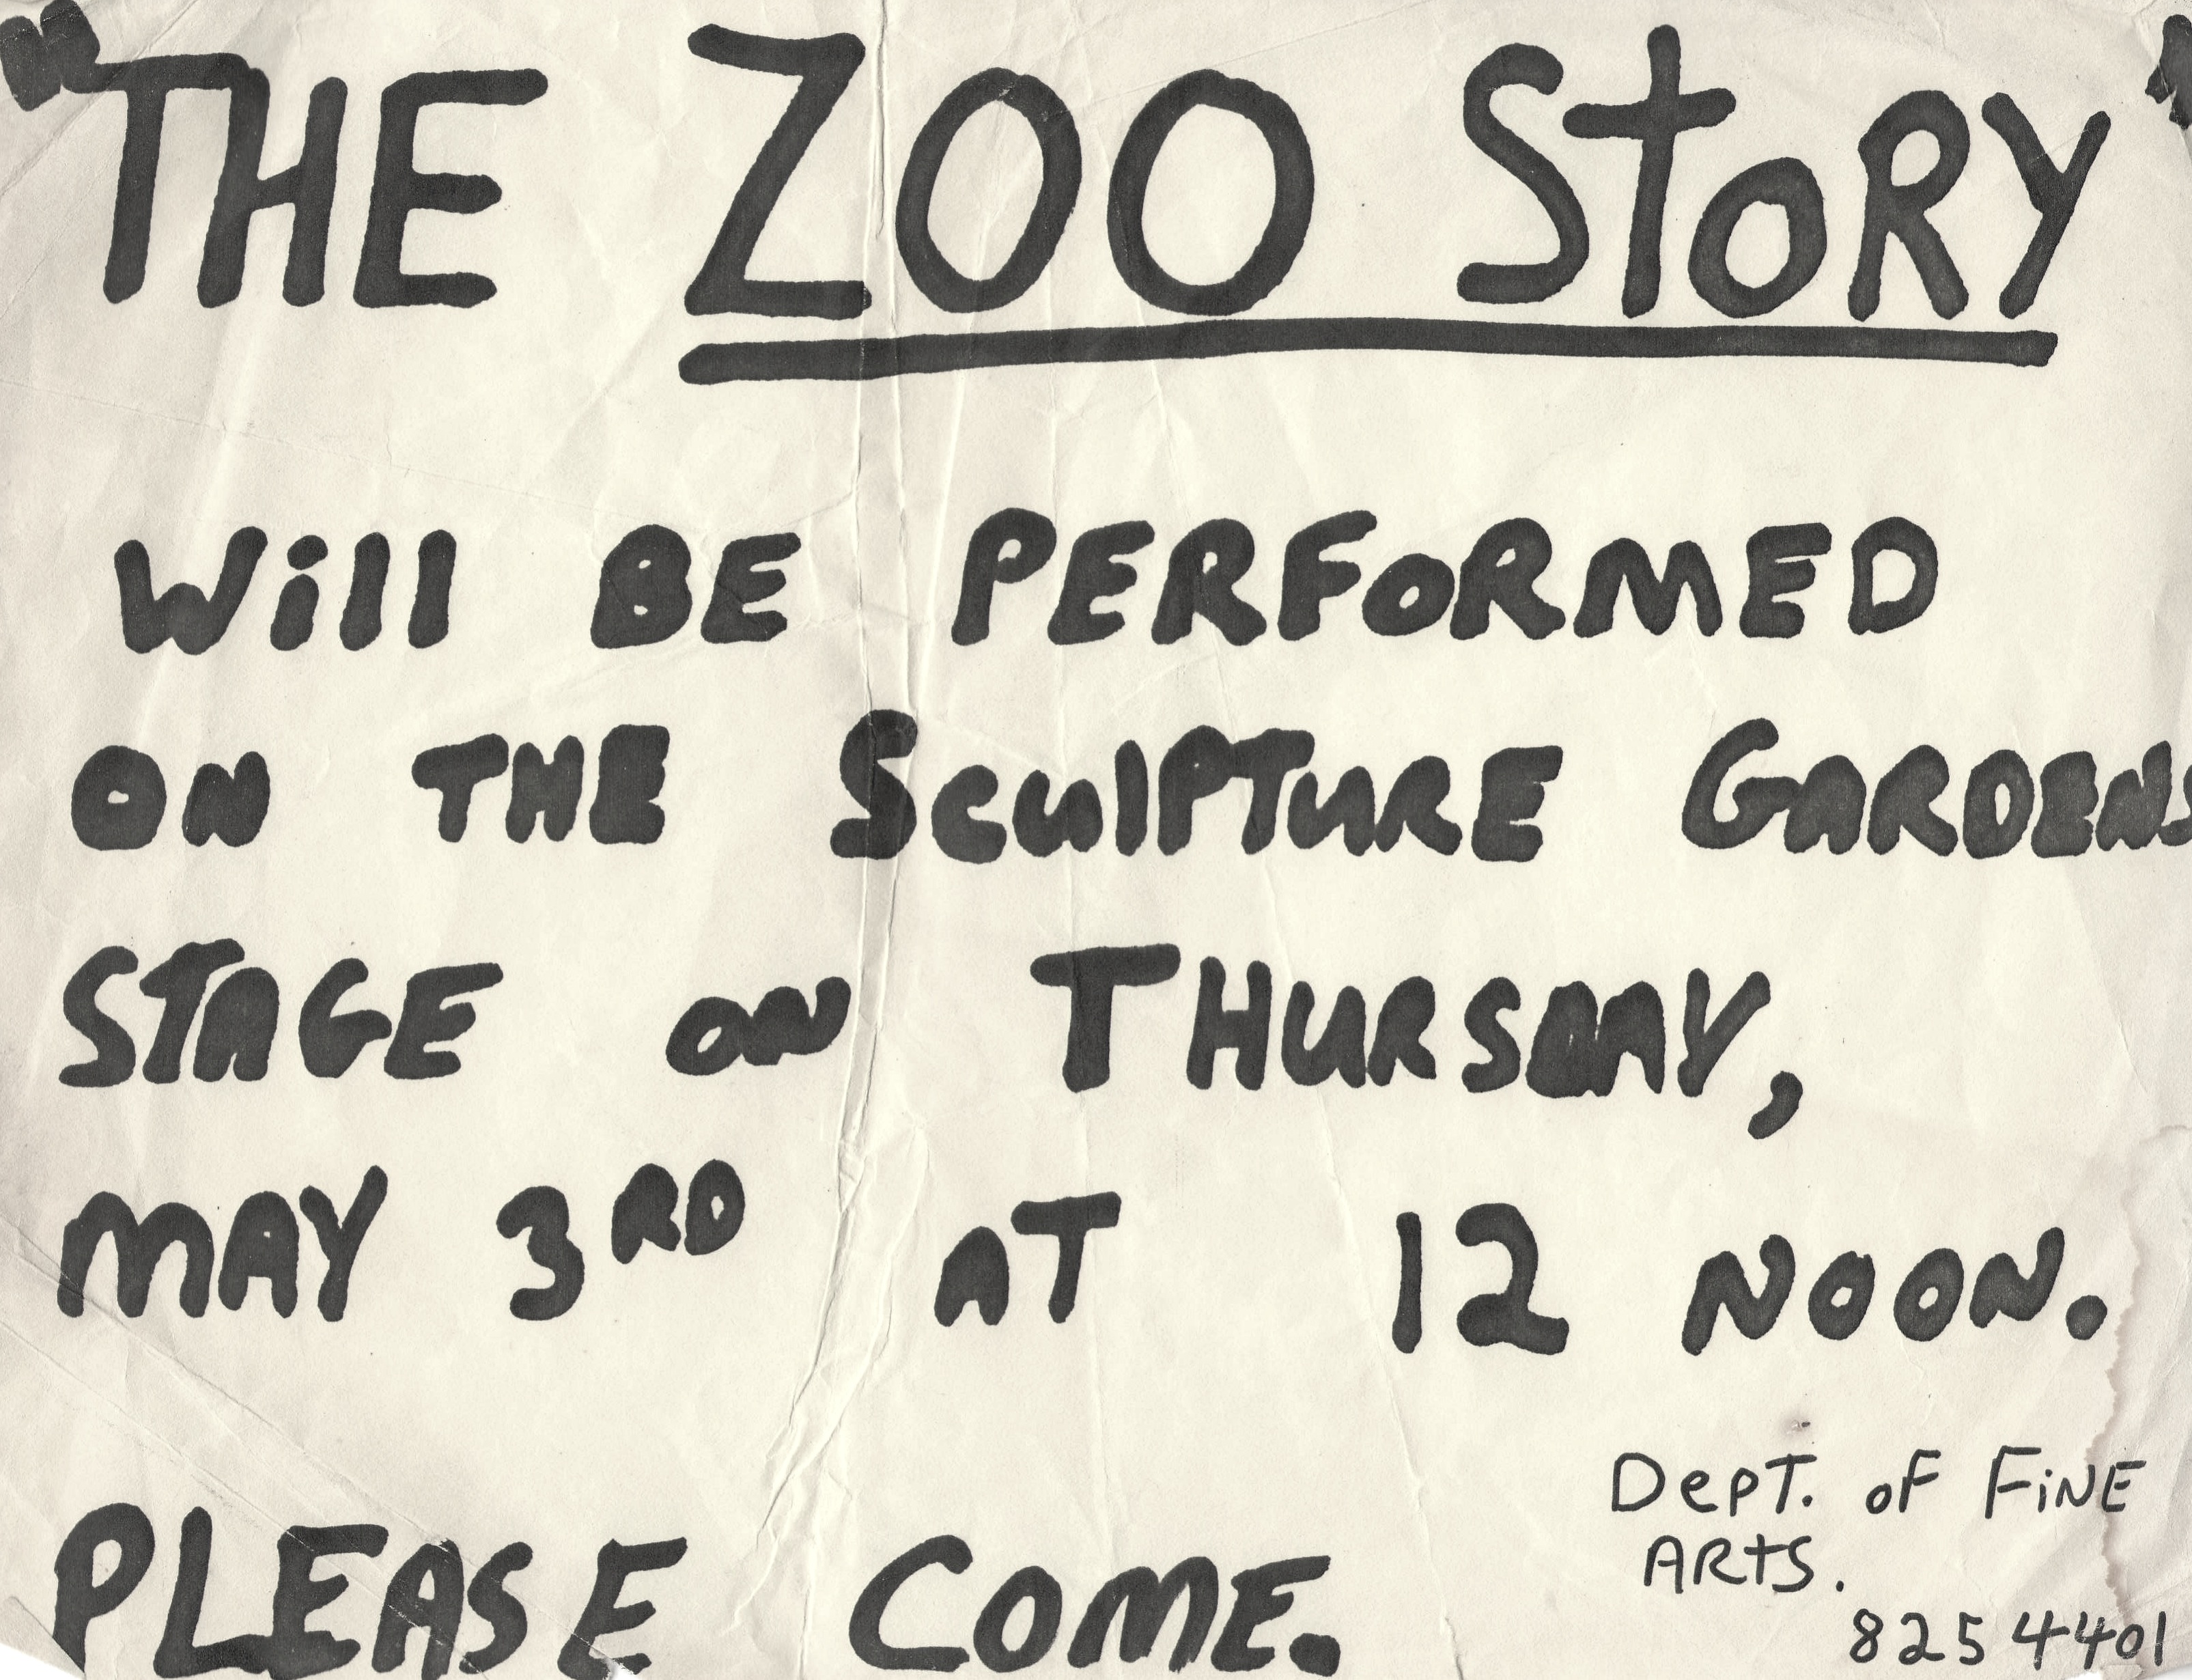 "THE ZOO StoRY"
Will BE PERFoRMED
ON THE SculPTuRE GARDENS
STAGE ON THURSDAY,
MAY 3RD AT 12 NOON.
PLEASE COME.
DePT. oF FiNE
ARtS.
825 4401